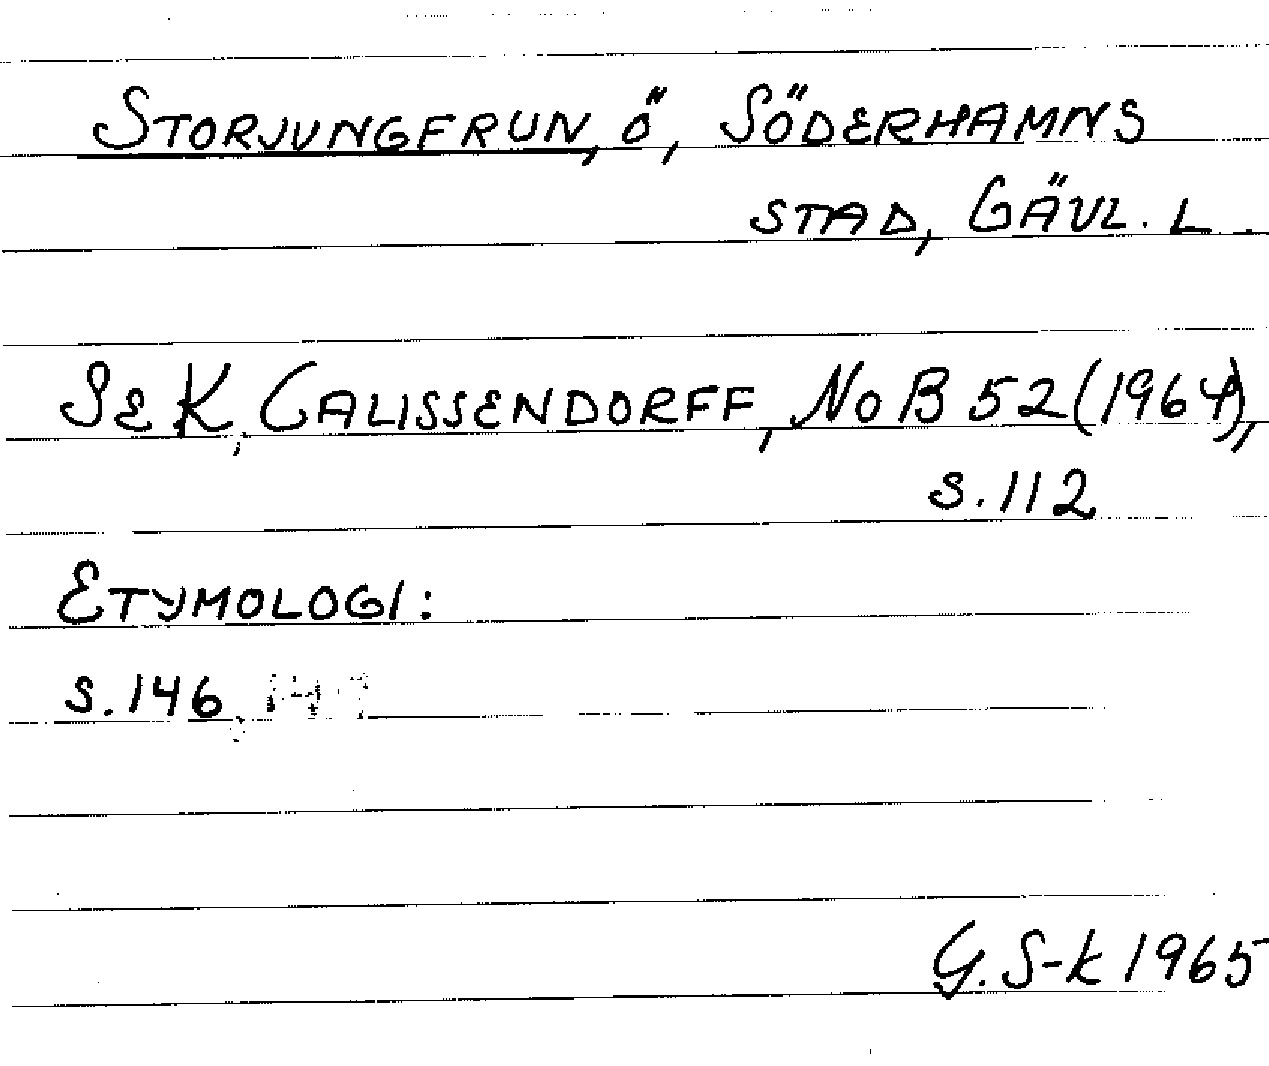 STORJUNGFRUN, Ö, SÖDERHAMNS
STAD, GÄVL. L.
SE K. CALISSENDORFF, NoB 52 (1964),
S. 112
ETYMOLOGI:
S. 146
G. S-k 1965